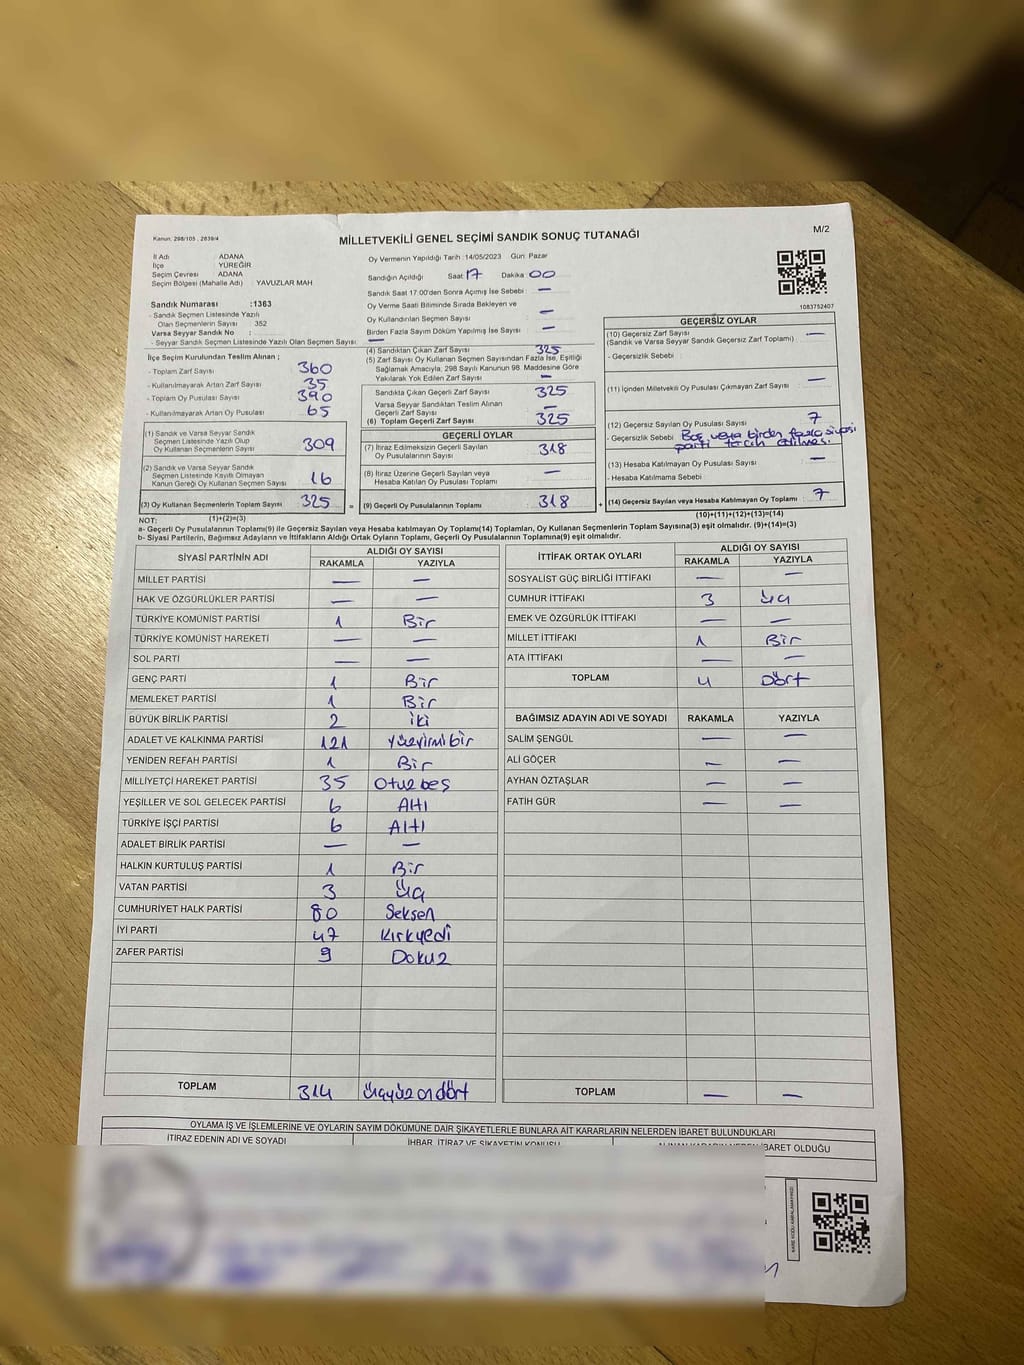 Kanun: 298/105 , 2839/4
MİLLETVEKİLİ GENEL SEÇİMİ SANDIK SONUÇ TUTANAĞI
M/2
İl Adı : ADANA
İlçe : YÜREĞİR
Seçim Çevresi : ADANA
Seçim Bölgesi (Mahalle Adı) : YAVUZLAR MAH
Sandık Numarası :1363
- Sandık Seçmen Listesinde Yazılı
Olan Seçmenlerin Sayısı : 352
Varsa Seyyar Sandık No :
- Seyyar Sandık Seçmen Listesinde Yazılı Olan Seçmen Sayısı: —
İlçe Seçim Kurulundan Teslim Alınan ;
- Toplam Zarf Sayısı : 360
- Kullanılmayarak Artan Zarf Sayısı : 35
- Toplam Oy Pusulası Sayısı : 390
- Kullanılmayarak Artan Oy Pusulası : 65
(1) Sandık ve Varsa Seyyar Sandık
Seçmen Listesinde Yazılı Olup
Oy Kullanan Seçmenlerin Sayısı : 309
(2) Sandık ve Varsa Seyyar Sandık
Seçmen Listesinde Kayıtlı Olmayan
Kanun Gereği Oy Kullanan Seçmen Sayısı : 16
(3) Oy Kullanan Seçmenlerin Toplam Sayısı : 325
(1)+(2)=(3)
Oy Vermenin Yapıldığı Tarih :14/05/2023 Gün: Pazar
Sandığın Açıldığı Saat: 17 Dakika: 00
Sandık Saat 17.00'den Sonra Açılmış İse Sebebi : —
Oy Verme Saati Bitiminde Sırada Bekleyen ve
Oy Kullandırılan Seçmen Sayısı : —
Birden Fazla Sayım Döküm Yapılmış İse Sayısı : —
(4) Sandıktan Çıkan Zarf Sayısı : 325
(5) Zarf Sayısı Oy Kullanan Seçmen Sayısından Fazla İse, Eşitliği
Sağlamak Amacıyla, 298 Sayılı Kanunun 98. Maddesine Göre
Yakılarak Yok Edilen Zarf Sayısı : —
Sandıkta Çıkan Geçerli Zarf Sayısı : 325
Varsa Seyyar Sandıktan Teslim Alınan
Geçerli Zarf Sayısı : —
(6) Toplam Geçerli Zarf Sayısı : 325
GEÇERLİ OYLAR
(7) İtiraz Edilmeksizin Geçerli Sayılan
Oy Pusulalarının Sayısı : 318
(8) İtiraz Üzerine Geçerli Sayılan veya
Hesaba Katılan Oy Pusulası Toplamı : —
= (9) Geçerli Oy Pusulalarının Toplamı : 318 +
1083752407
GEÇERSİZ OYLAR
(10) Geçersiz Zarf Sayısı : —
(Sandık ve Varsa Seyyar Sandık Geçersiz Zarf Toplamı)
- Geçersizlik Sebebi :
(11) İçinden Milletvekili Oy Pusulası Çıkmayan Zarf Sayısı : —
(12) Geçersiz Sayılan Oy Pusulası Sayısı : 7
- Geçersizlik Sebebi : Boş veya birden fazla siyasi
parti tercih edilmesi
(13) Hesaba Katılmayan Oy Pusulası Sayısı : —
- Hesaba Katılmama Sebebi :
(14) Geçersiz Sayılan veya Hesaba Katılmayan Oy Toplamı : 7
(10)+(11)+(12)+(13)=(14)
NOT:
a- Geçerli Oy Pusulalarının Toplamı(9) ile Geçersiz Sayılan veya Hesaba katılmayan Oy Toplamı(14) Toplamları, Oy Kullanan Seçmenlerin Toplam Sayısına(3) eşit olmalıdır. (9)+(14)=(3)
b- Siyasi Partilerin, Bağımsız Adayların ve İttifakların Aldığı Ortak Oyların Toplamı, Geçerli Oy Pusulalarının Toplamına(9) eşit olmalıdır.
SİYASİ PARTİNİN ADI ALDIĞI OY SAYISI
RAKAMLA YAZIYLA
MİLLET PARTİSİ — —
HAK VE ÖZGÜRLÜKLER PARTİSİ — —
TÜRKİYE KOMÜNİST PARTİSİ 1 Bir
TÜRKİYE KOMÜNİST HAREKETİ — —
SOL PARTİ — —
GENÇ PARTİ 1 Bir
MEMLEKET PARTİSİ 1 Bir
BÜYÜK BİRLİK PARTİSİ 2 iki
ADALET VE KALKINMA PARTİSİ 121 yüzyirmibir
YENİDEN REFAH PARTİSİ 1 Bir
MİLLİYETÇİ HAREKET PARTİSİ 35 Otuzbeş
YEŞİLLER VE SOL GELECEK PARTİSİ 6 Altı
TÜRKİYE İŞÇİ PARTİSİ 6 Altı
ADALET BİRLİK PARTİSİ — —
HALKIN KURTULUŞ PARTİSİ 1 Bir
VATAN PARTİSİ 3 üç
CUMHURİYET HALK PARTİSİ 80 Seksen
İYİ PARTİ 47 Kırkyedi
ZAFER PARTİSİ 9 Dokuz
TOPLAM 314 üçyüzondört
İTTİFAK ORTAK OYLARI ALDIĞI OY SAYISI
RAKAMLA YAZIYLA
SOSYALİST GÜÇ BİRLİĞİ İTTİFAKI — —
CUMHUR İTTİFAKI 3 üç
EMEK VE ÖZGÜRLÜK İTTİFAKI — —
MİLLET İTTİFAKI 1 Bir
ATA İTTİFAKI — —
TOPLAM 4 Dört
BAĞIMSIZ ADAYIN ADI VE SOYADI RAKAMLA YAZIYLA
SALİM ŞENGÜL — —
ALİ GÖÇER — —
AYHAN ÖZTAŞLAR — —
FATİH GÜR — —
TOPLAM — —
OYLAMA İŞ VE İŞLEMLERİNE VE OYLARIN SAYIM DÖKÜMÜNE DAİR ŞİKAYETLERLE BUNLARA AİT KARARLARIN NELERDEN İBARET BULUNDUKLARI
İTİRAZ EDENİN ADI VE SOYADI
İHBAR, İTİRAZ VE ŞİKAYETİN KONUSU
İBARET OLDUĞU